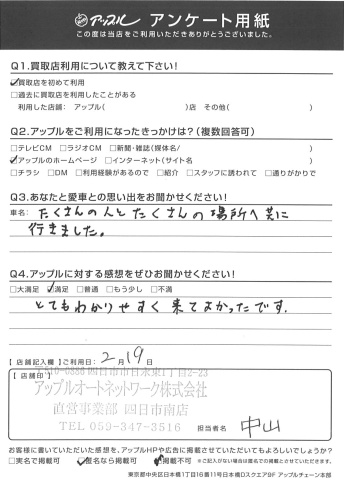 アップル アンケート用紙
この度は当店をご利用いただきありがとうございました。
Q1.買取店利用について教えて下さい!
☑買取店を初めて利用
□過去に買取店を利用したことがある
利用した店舗: アップル( )店 その他( )
Q2.アップルをご利用になったきっかけは?(複数回答可)
□テレビCM □ラジオCM □新聞・雑誌(媒体名/ )
☑アップルのホームページ □インターネット(サイト名 )
□チラシ □DM □利用経験があるので □紹介 □スタッフに誘われて □通りがかりで
Q3.あなたと愛車との思い出をお聞かせください!
車名: たくさんの人とたくさんの場所へ共に
行きました。
Q4.アップルに対する感想をぜひお聞かせください!
□大満足 ☑満足 □普通 □もう少し □不満
とてもわかりやすく来てよかったです.
【店舗記入欄】ご利用日: 2月19日
【店舗印】
〒510-0886 四日市市日永東1丁目2-23
アップルオートネットワーク株式会社
直営事業部 四日市南店
TEL 059-347-3516
担当者名 中山
お客様に書いていただいた感想を、アップルHPや広告に掲載させていただいてもよろしいでしょうか?
□実名で掲載可 ☑匿名なら掲載可 ☑掲載不可 ※ご記入がない場合は匿名での掲載とさせていただきます。
東京都中央区日本橋1丁目16番11号日本橋Dスクエア9F アップルチェーン本部